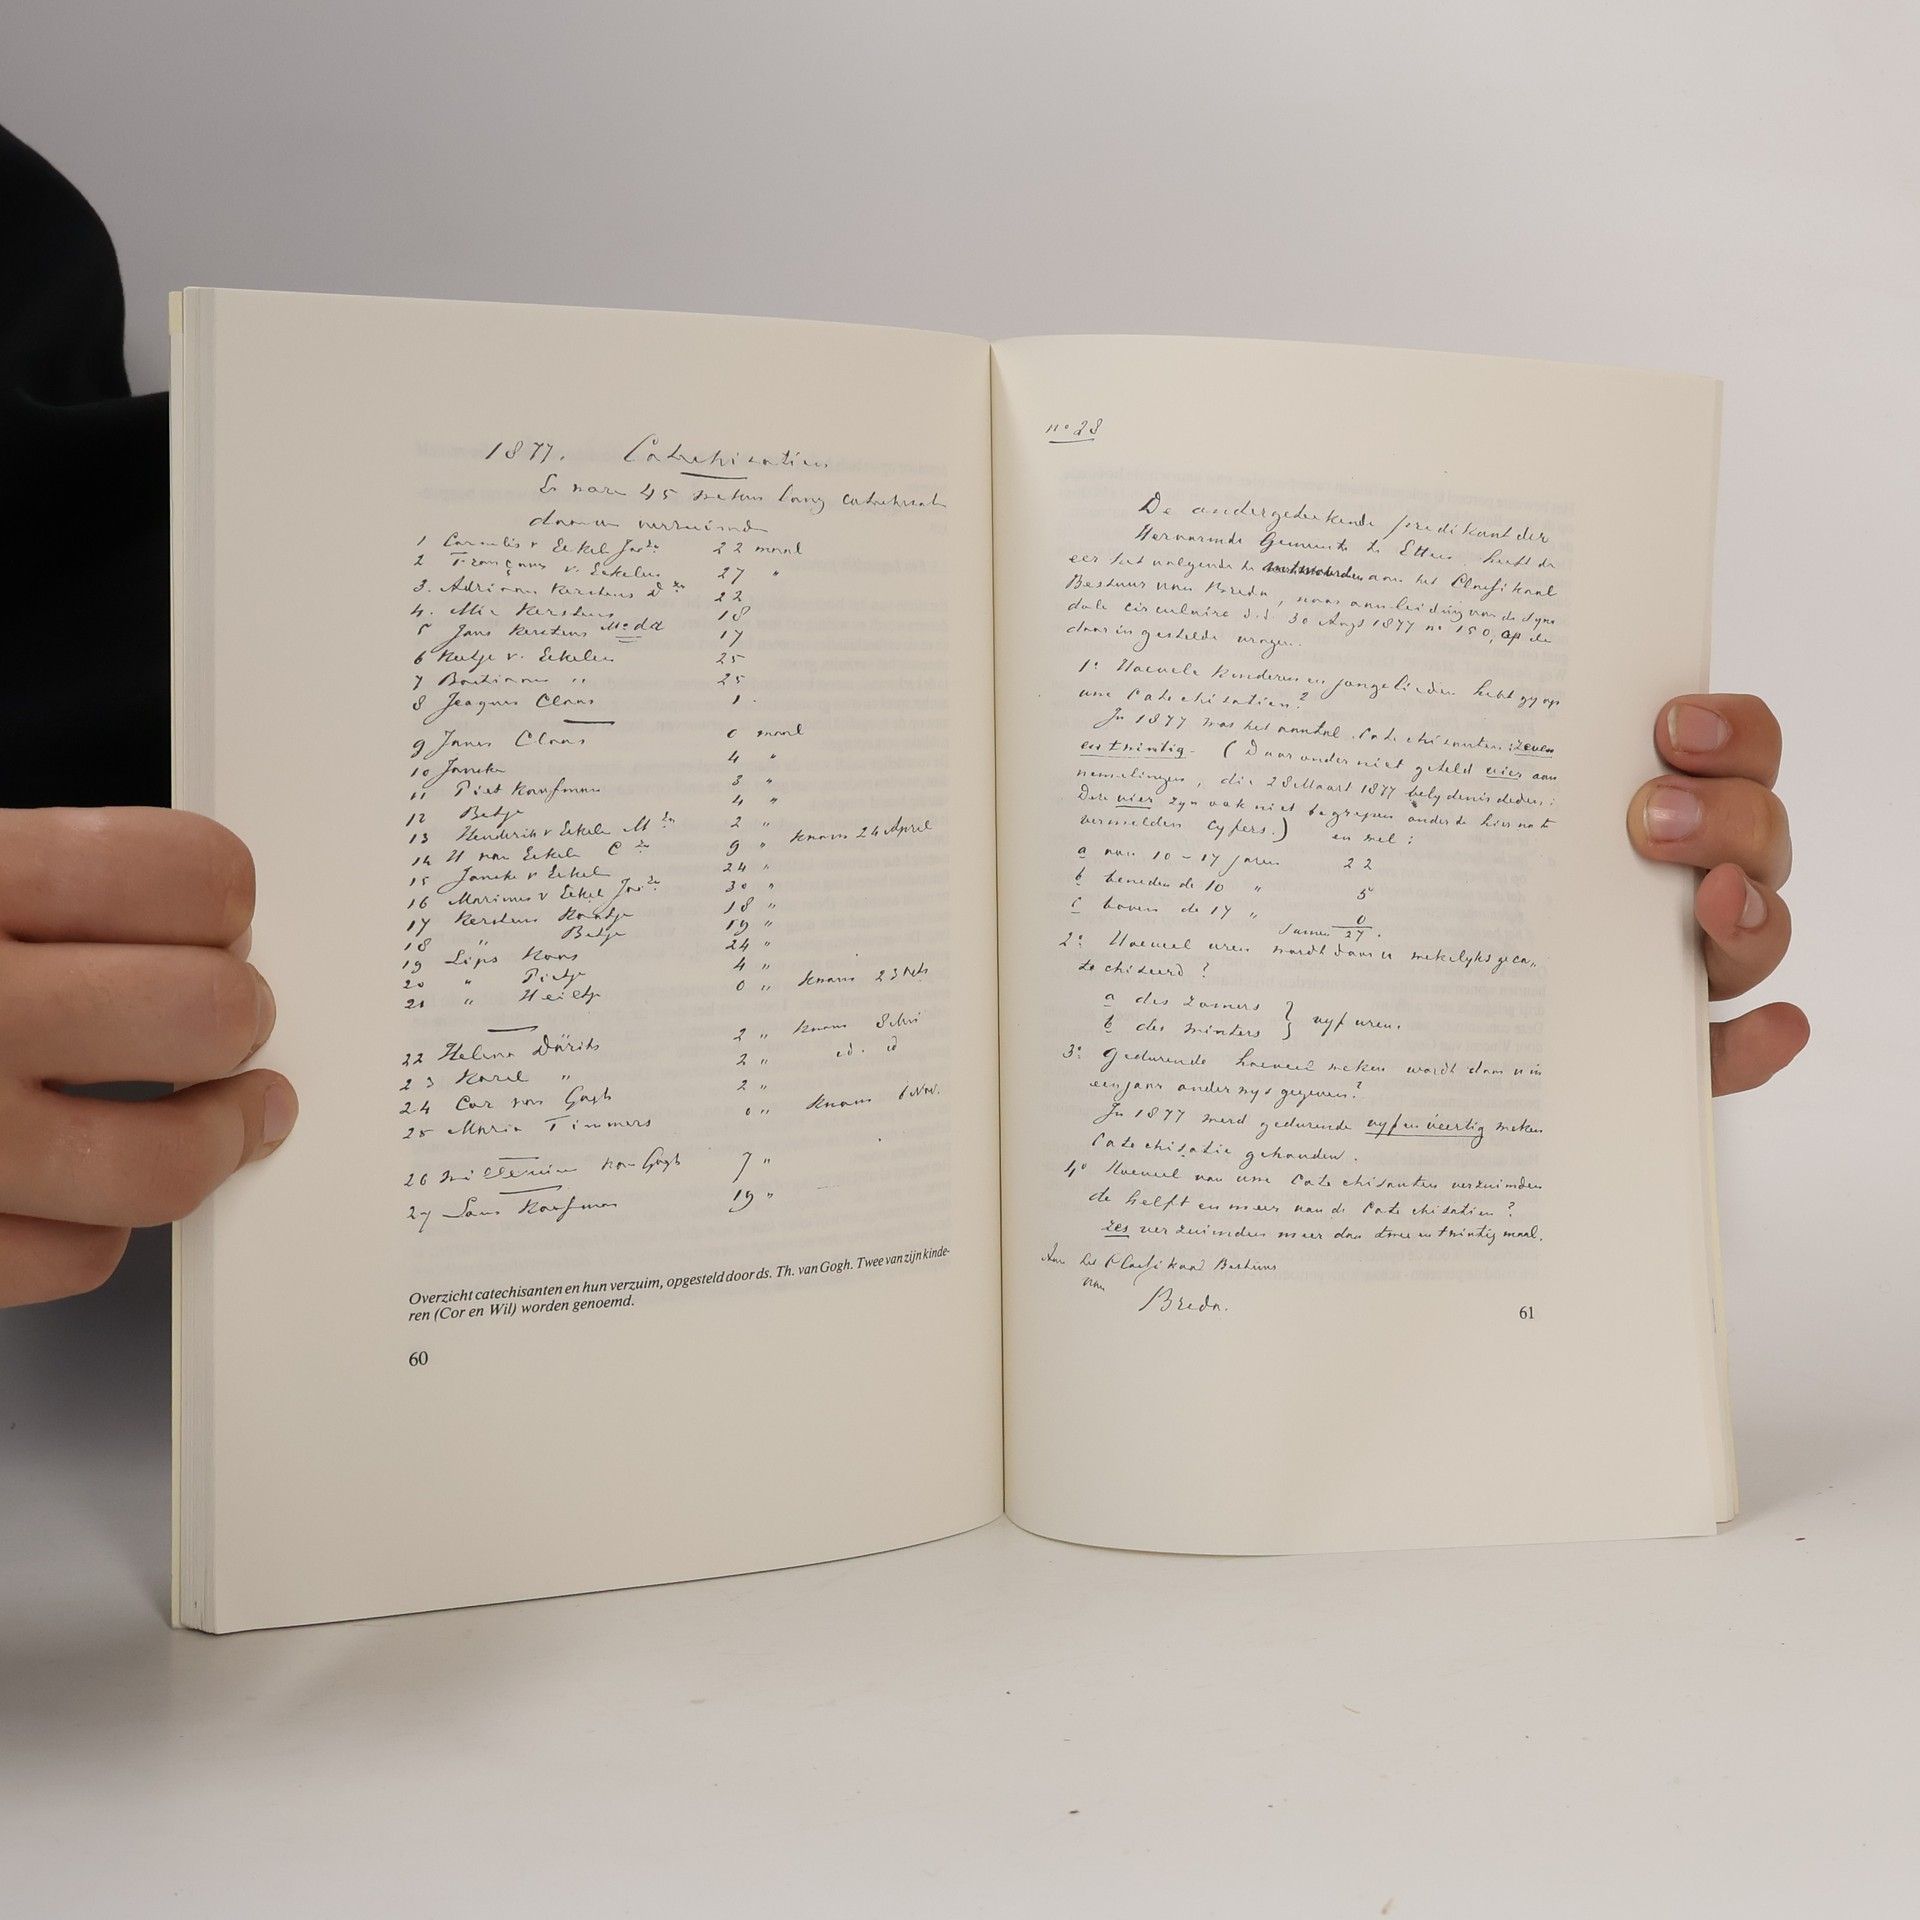 1877. Catechisatien
Er ware 45 weken lang catechisatie
daarvan verzuimde
1 Cornelis v Eekel Jac zn 22 maal
2 Françous v. Eekelen 27 "
3. Adriaan Kerstens D zn 22
4. Mie Kerstens 18
5 Jans Kerstens 17
6 Keetje v. Eekelen 25
7 Bastiaan " 25
8 Jeaques Claas 1.
9 Janus Claas 0 maal
10 Janeke 4 "
11 Piet Kaufman 3 "
12 Betje 4 "
13 Henderik v Eekele M zn 2 "
14 H van Eekele C zn 9 " kwam 24 April
15 Janeke v Eekel 24 "
16 Marinus v Eekel Jac zn 30 "
17 Kerstens Kaatje 18 "
18 " Betje 19 "
19 Lips Koos 24 "
20 " Pietje 4 "
21 " Heiltje 0 " kwam 23
22 Helena Däriks 2 " kwam 8 Mei
23 Karel " 2 " id. id
24 Cor van Gogh 2 "
25 Maria Timmers 0 " kwam 6 Nov.
26 Willemina van Gogh 7 "
27 Kaufman 19 "
Overzicht catechisanten en hun verzuim, opgesteld door ds. Th. van Gogh. Twee van zijn kinde-
ren (Cor en Wil) worden genoemd.
60
no 28
De ondergeteekende predikant der
Hervormde Gemeente te Etten heeft de
eer het volgende te antwoorden aan het Classikaal
Bestuur van Breda, naar aanleiding van de Syno
dale circulaire d.d. 30 Augs 1877 no 150, op de
daarin gestelde vragen.
1o Hoevele kinderen en jongelieden hebt gy op
uwe Catechisatien?
In 1877 was het aantal Catechisanten: zeven
en twintig. (Daaronder niet geteld vier aan
nemelingen, die 28 Maart 1877 belydenis deden:
Deze vier zyn ook niet begrepen onder de hierna te
vermelden cyfers.) en wel:
a van 10 - 17 jaren 22
b beneden de 10 " 5
c boven de 17 " 0
Samen 27.
2o Hoeveel uren wordt door u wekelyks geca„
techiseerd?
a des zomers } vyf uren.
b des winters
3o Gedurende hoeveel weken wordt door u in
een jaar onderwys gegeven?
In 1877 werd gedurende vyf en veertig weken
Catechisatie gehouden.
4o Hoeveel van uwe Catechisanten verzuimden
de helft en meer van de Catechisatien?
zes verzuimden meer dan twee en twintig maal.
Aan het Classikaal Bestuur
van
Breda.
61